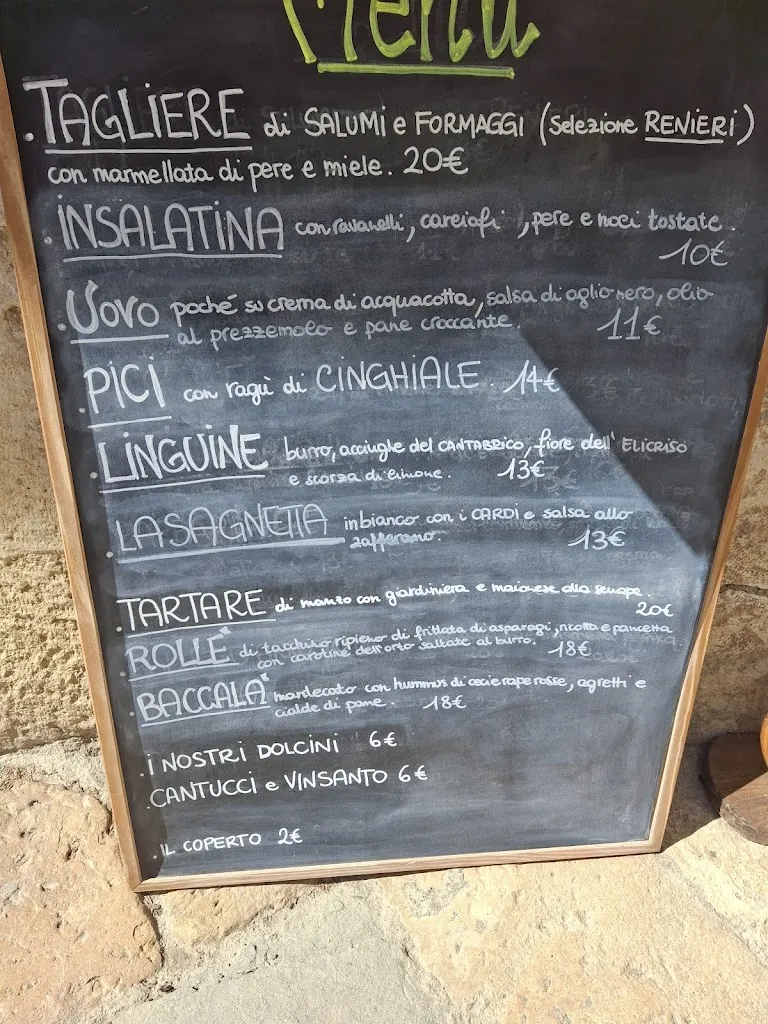 Menu
.TAGLIERE di SALUMI e FORMAGGI (selezione RENIERI)
con marmellata di pere e miele. 20€
.INSALATINA con ravanelli, carciofi , pere e noci tostate.
10€
.UOVO poché su crema di acquacotta, salsa di aglio nero, olio
al prezzemolo e pane croccante. 11€
.PICI con ragù di CINGHIALE. 14€
.LINGUINE burro, acciughe del CANTABRICO, fiore dell' ELICRISO
e scorza di limone. 13€
.LASAGNETTA in bianco con i CARDI e salsa allo
zafferano. 13€
.TARTARE di manzo con giardiniera e maionese alla senape.
20€
.ROLLÉ di tacchino ripieno di frittata di asparagi, ricotta e pancetta
con carotine dell'orto saltate al burro. 18€
.BACCALÀ mantecato con hummus di ceci e rape rosse, agretti e
cialde di pane. 18€
.I NOSTRI DOLCINI 6€
.CANTUCCI e VINSANTO 6€
.IL COPERTO 2€